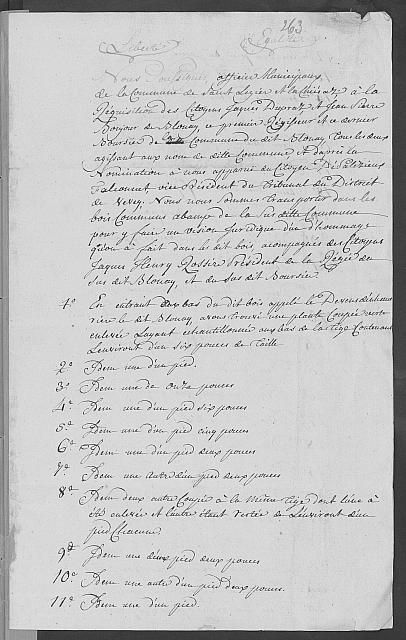 263
Liberté Egalité
Nous Soussignés, officier Municipaux
de la Commune de Saint Legier & la Chiésaz à la
Réquisition des Citoyens Jaques Dupraz & Jean Pierre
Bonjour de Blonay, ce premier Régisseur & ce dernier
Boursier de la Commune du dit Blonay, tous les deux
agissant aux nom de dite Commune, et d'après la
Nomination à nous apparue du Citoyen
Falconnet vice Président du Tribunal du District
de Vevey. Nous nous sommes transporter dans les
bois Communs abamp de la Sus ditte Commune
pour y faire un vision Juridique du d'hommage
qu'on à fait dans le dit bois, acompagnés des Citoyens
Jaques Fleury Rossier Président de la Régie du
Sus dit Blonay, et du Sus dit Boursier.
1º En entrant aux bas du dit bois appelé le
riere le dit Blonay avons trouvé une plante Coupée verte
enlevée Layant échantillonnée aux bas de la tige Contenant
Lenviront d'un six pouces de Taille
2º Idem un d'un pied.
3º Idem une de onze pouces
4º Idem une d'un pied six pouces
5º Idem une d'un pied cinq pouces
6º Idem une d'un pied deux pouces
7º Idem une autre d'un pied deux pouces
8º Idem deux autre Coupée à la même tige dont l'une à
été enlevée et l'autre étant restée de Lenviront d'un
pied Chacune
9º Idem une d'un pied deux pouces
10º Idem une autre d'un pied deux pouces.
11º Idem une d'un pied.